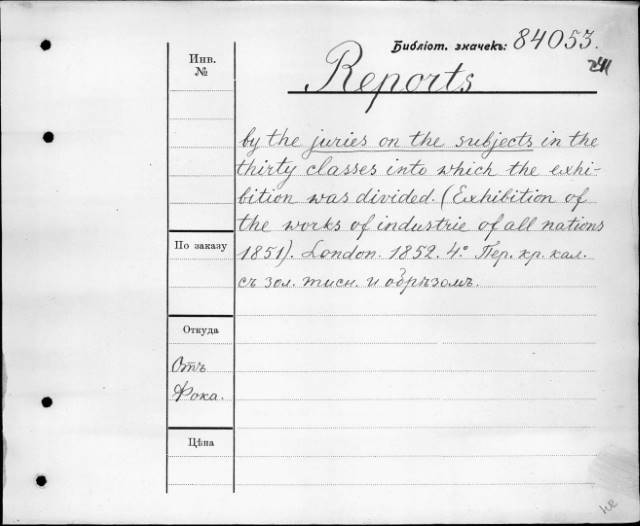 Библіот. значекъ: 84053.
241
Инв.
№
Reports
by the juries on the subjects in the
thirty classes into which the exhi-
bition was divided. (Exhibition of
the works of industrie of all nations
1851). London. 1852. 4° Пер. кр. кал.
съ зол. тисн. и обрѣзомъ.
По заказу
Откуда
Отъ
Фока.
Цѣна